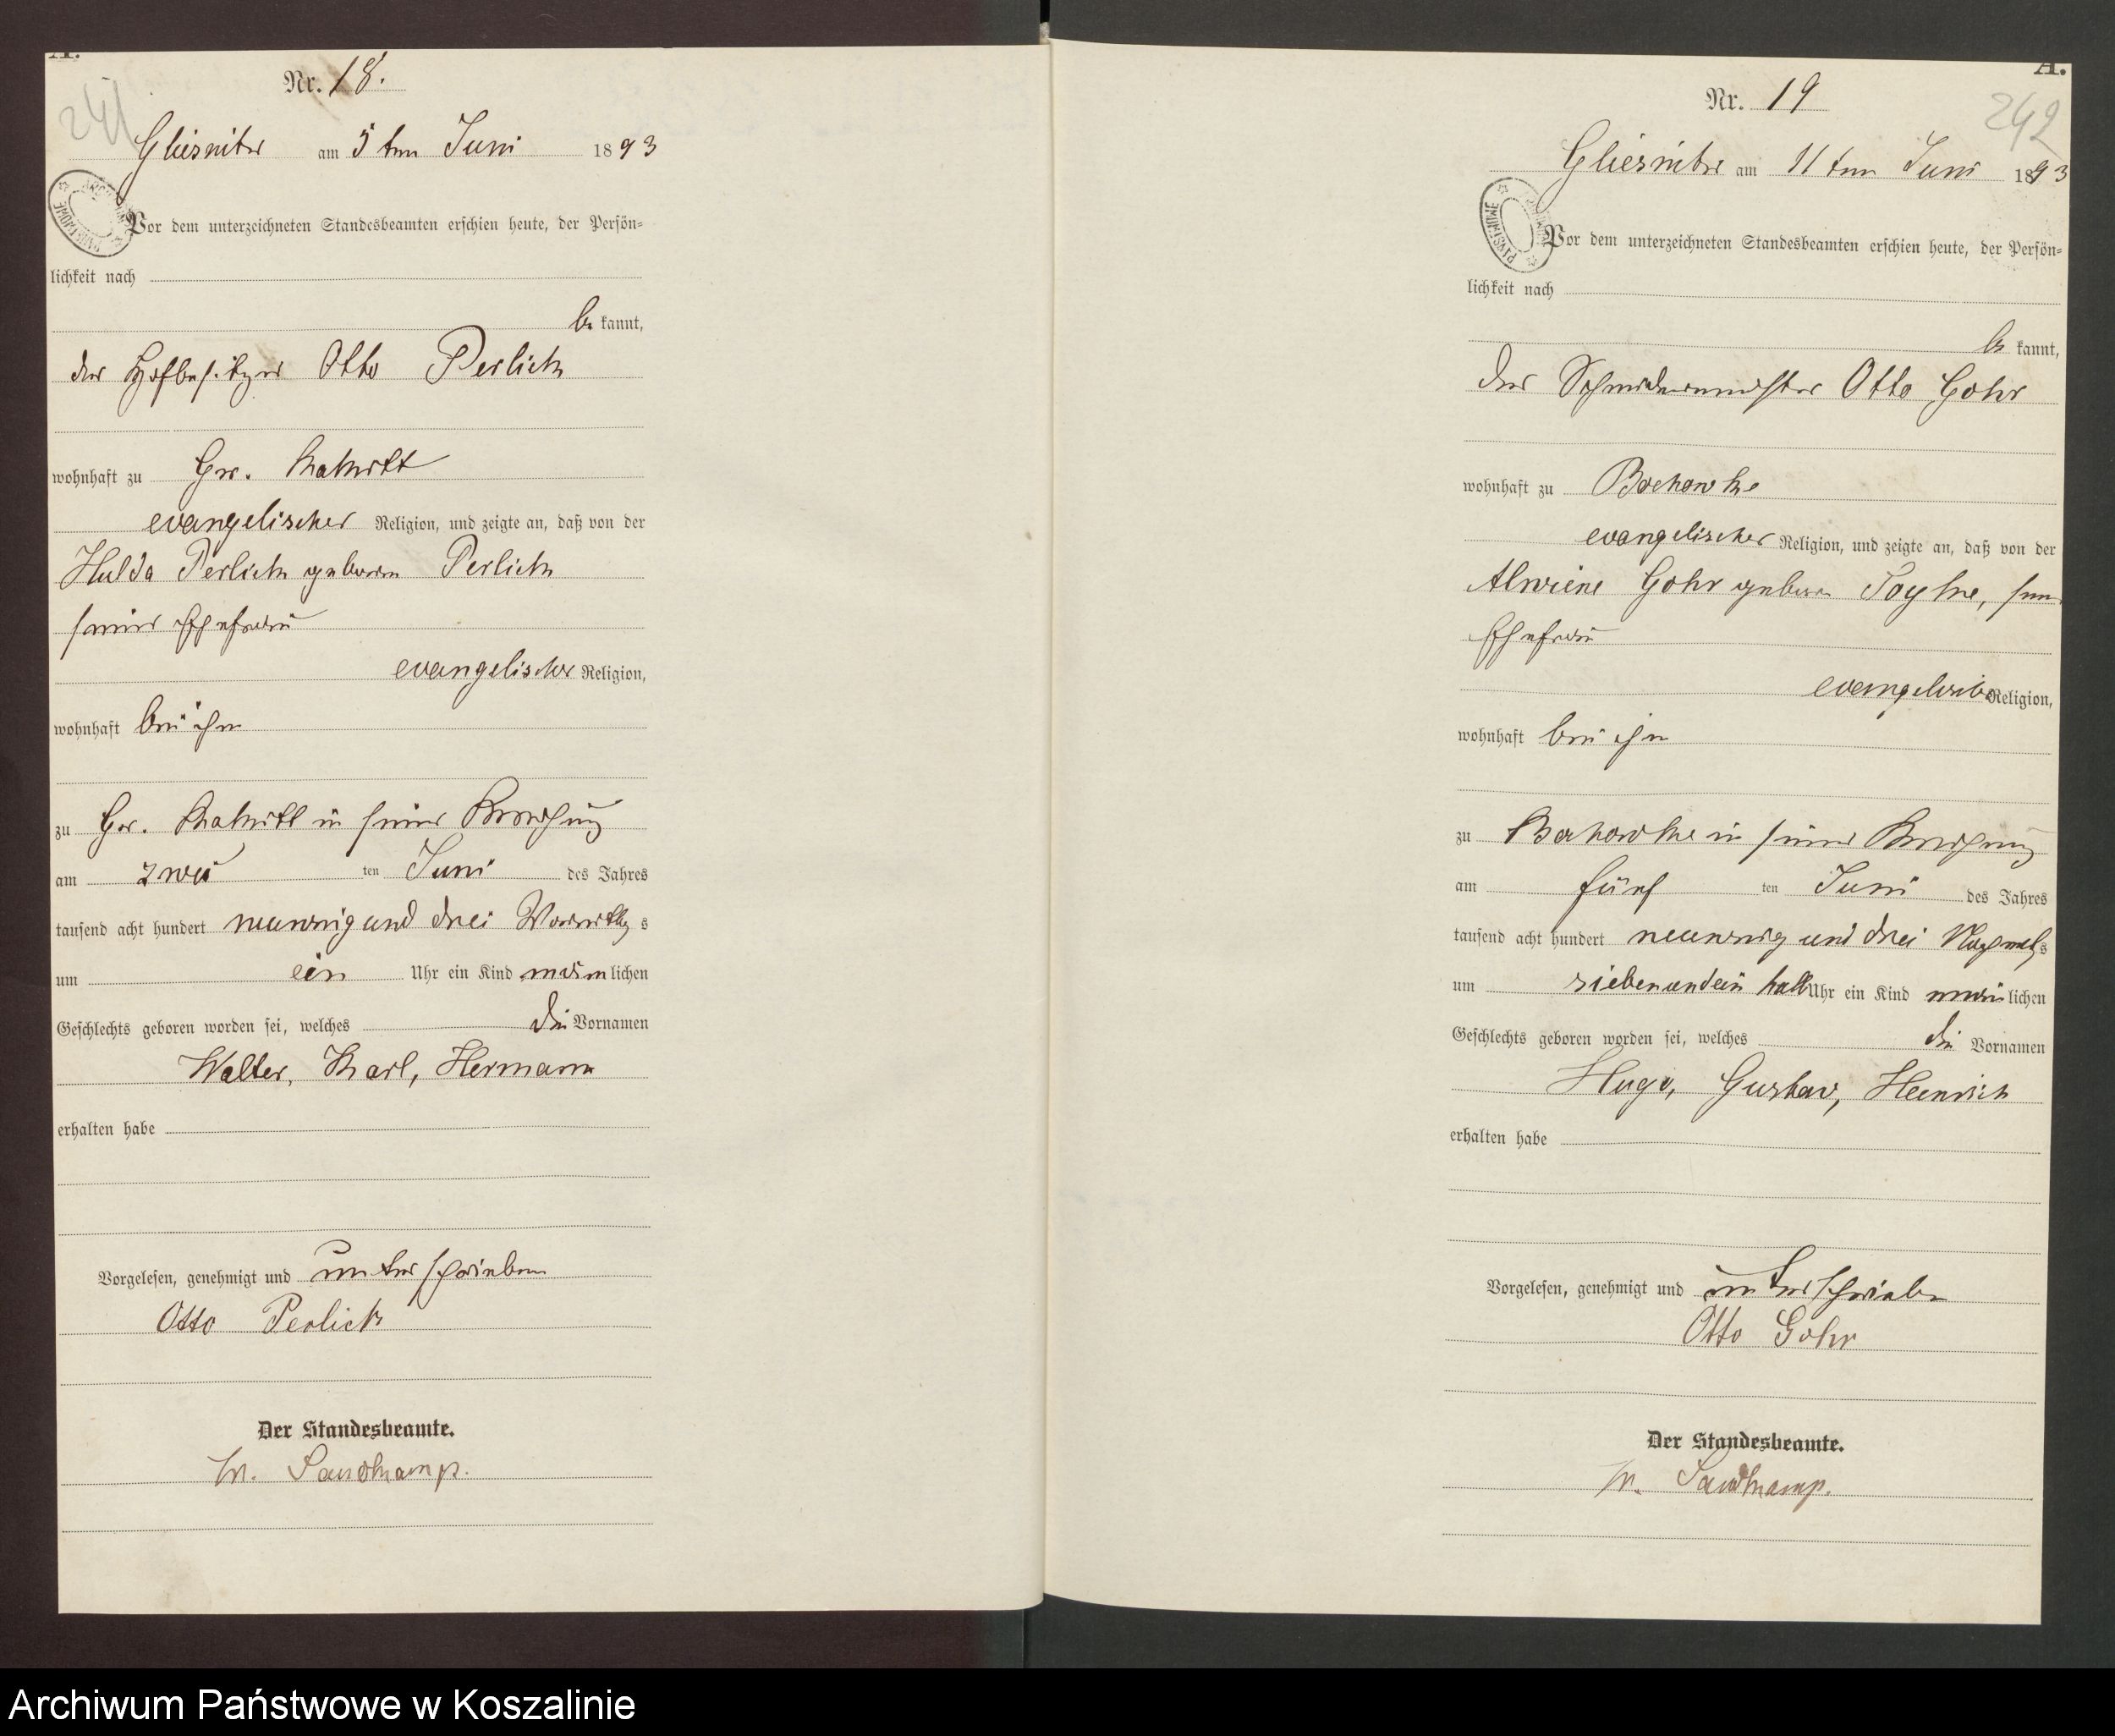 A.
241
Nr. 18.
Gliesnitz am 5ten Juni 1893
Vor dem unterzeichneten Standesbeamten erschien heute, der Persön=
lichkeit nach
be kannt,
der Hofbesitzer Otto Perlick
wohnhaft zu Gr.
evangelischer Religion, und zeigte an, daß von der
Hulda Perlick geboren Perlick
seiner Ehefrau
evangelischer Religion,
wohnhaft bei ihm
zu Gr. in seiner Wohnung
am zwei ten Juni des Jahres
tausend acht hundert neunzig und drei Vormittags
um ein Uhr ein Kind männlichen
Geschlechts geboren worden sei, welches die Vornamen
Walter, Karl, Hermann
erhalten habe
Vorgelesen, genehmigt und unterschrieben
Otto Perlick
Der Standesbeamte.
Sandkamp.
A.
242
Nr. 19
Gliesnitz am 11ten Juni 1893
Vor dem unterzeichneten Standesbeamten erschien heute, der Persön=
lichkeit nach
be kannt,
der Schneidermeister Otto Gohr
wohnhaft zu Bochowke
evangelischer Religion, und zeigte an, daß von der
Alwiene Gohr geboren seiner
Ehefrau
evangelischer Religion,
wohnhaft bei ihm
zu Bochowke in seiner Wohnung
am fünf ten Juni des Jahres
tausend acht hundert neunzig und drei Nachmittags
um siebenundein halb Uhr ein Kind männlichen
Geschlechts geboren worden sei, welches die Vornamen
Hugo, Gustav, Heinrich
erhalten habe
Vorgelesen, genehmigt und unterschrieben
Otto Gohr
Der Standesbeamte.
Sandkamp.
Archiwum Państwowe w Koszalinie